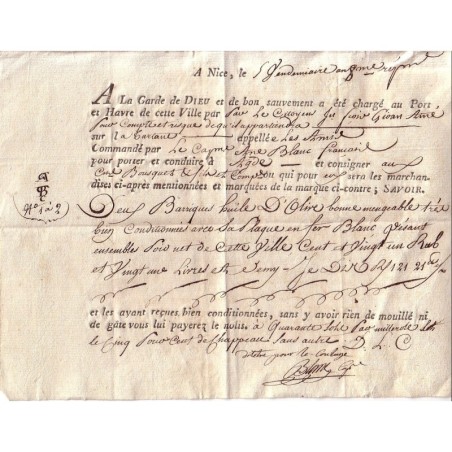 A Nice, le 5 Vendemiaire an 8me repne
A La Garde de DIEU et de bon sauvement a été chargé au Port
et Havre de cette Ville par Les Citoyens
Pour Compte et risque de qui il appartiendra
sur la Tartane appellée Les Amis
Commandé par Le Capne Blanc francais
pour porter et conduire à Agde et consigner aux
Cens Bousquet fils et Comp ou qui pour eux sera les marchan-
disses ci-après mentionnées et marquées de la marque ci-contre; SAVOIR.
No 1 à 2
Deux Barriques huile D'Olive bonne mangeable très
bien Conditionnées avec Sa Plaque en fer Blanc pesant
ensembles Poid net de Cette Ville Cent et Vingt un Rub
et Vingt une Livres et Demy Je Dis 121 21
et les ayant reçues bien conditionnées, sans y avoir rien de mouillé ni
de gâte vous lui payerez le nolis. à Quarante Sols Par
le Cinq Pour Cent de Chappeau Sans autre D. L. C